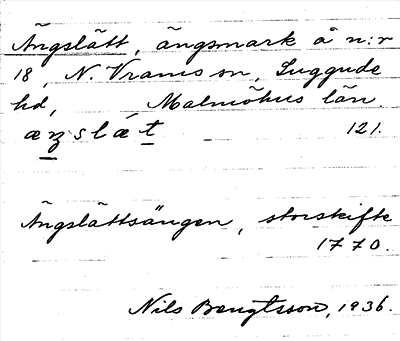 Ängslätt, ängsmark å n:r
18, N. Vrams sn, Luggude
hd, Malmöhus län.
æŋslæ̀t 121.
Ängslättsängen, storskifte
1770.
Nils Bengtsson, 1936.